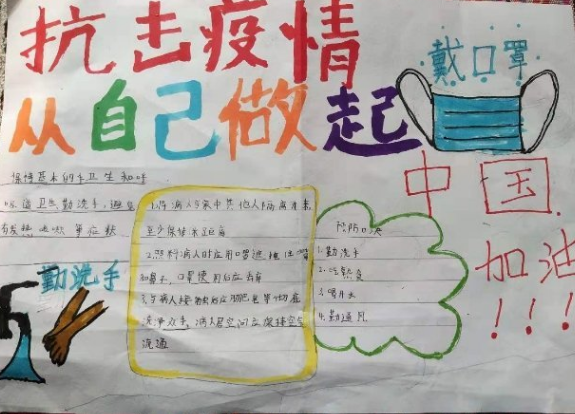 抗击疫情
从自己做起
戴口罩
中国
加油
!!!
保持基本的手卫生和呼
吸道卫生勤洗手,避免
有发热咳嗽等症状
勤洗手
1.将病人与家中其他人隔离
至少保持1米距离
2.照料病人时应用口罩遮
和鼻子,口罩使用后应丢弃
3.与病人接触后应用肥皂
洗净双手,病人居空间应保持空气
流通
预防口决
1.勤洗手
2.吃熟食
3.喝开水
4.勤通风